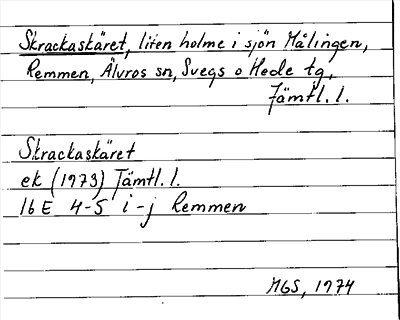 Skrackaskäret, liten holme i sjön Målingen,
Remmen, Älvros sn, Svegs o Hede tg,
Jämtl. l.
Skrackaskäret
ek (1973) Jämtl. l.
16E 4-5 i-j Remmen
MGS, 1974